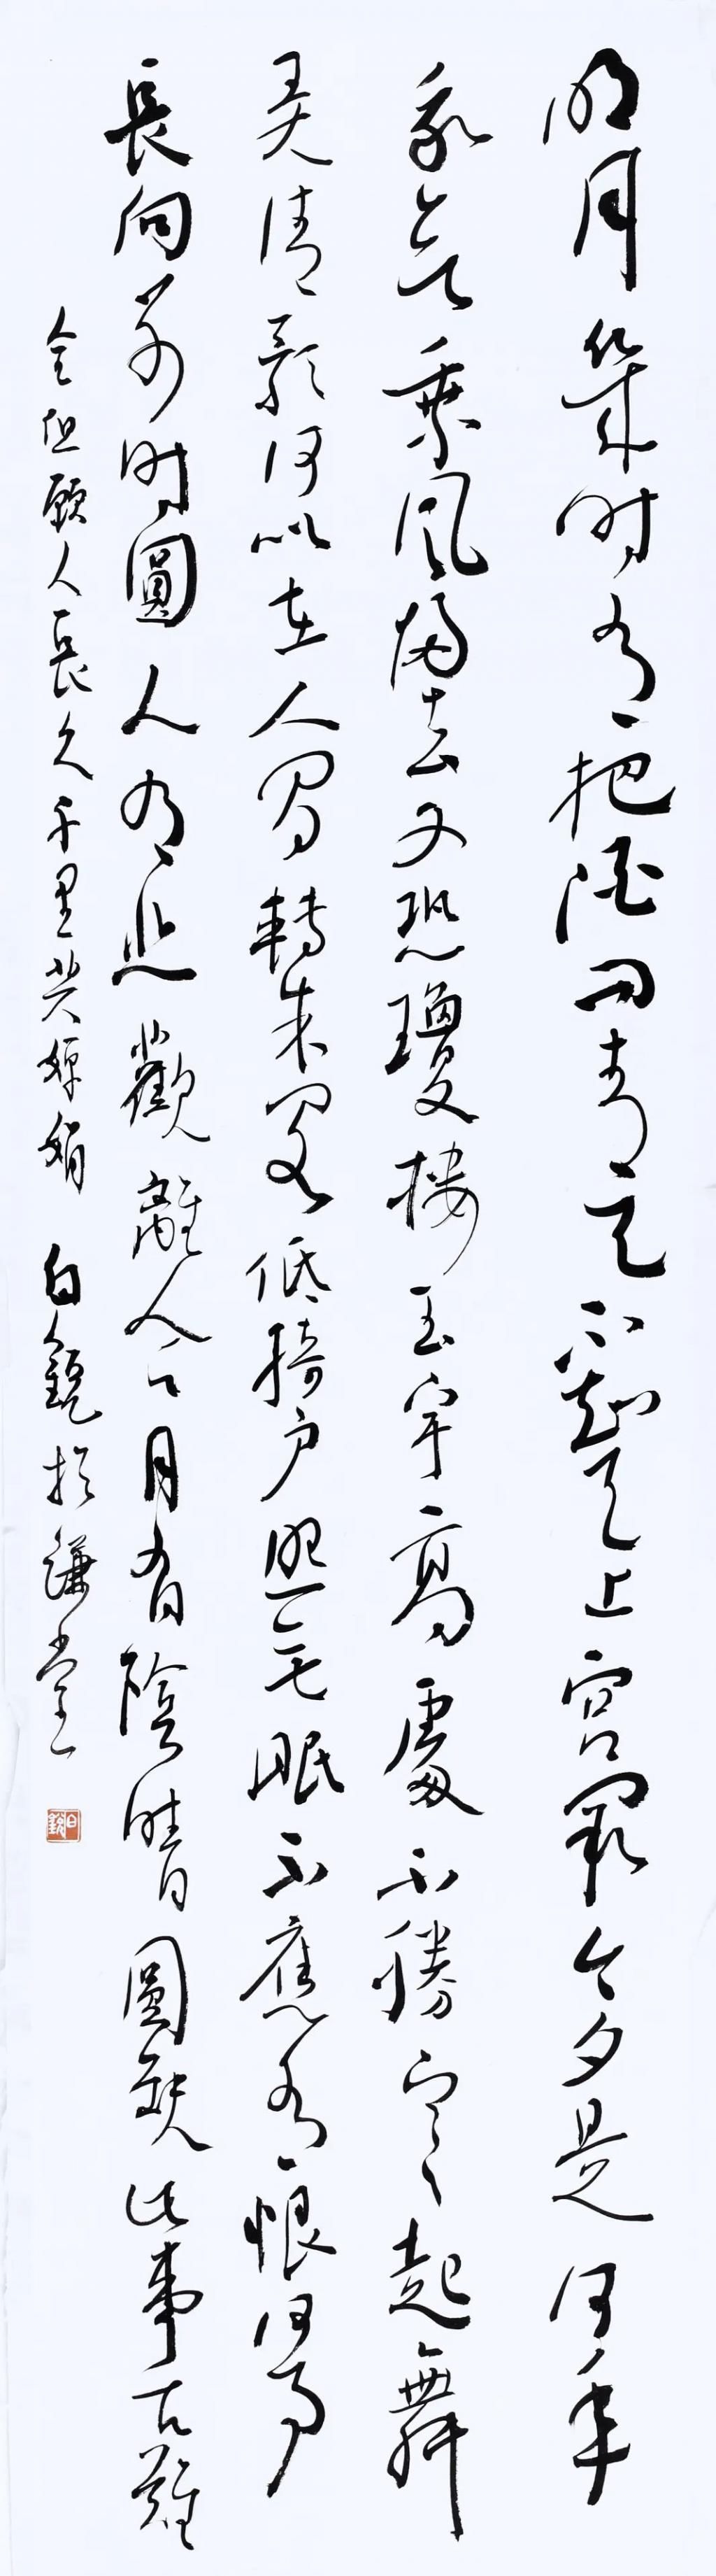 明月幾時有把酒問青天不知天上宮闕今夕是何年
我欲乘風歸去又恐瓊樓玉宇高處不勝寒起舞
弄清影何似在人間轉朱閣低綺戶照無眠不應有恨何事
長向別時圓人有悲歡離合月有陰晴圓缺此事古難
全但願人長久千里共嬋娟 白銳於謙堂
白銳